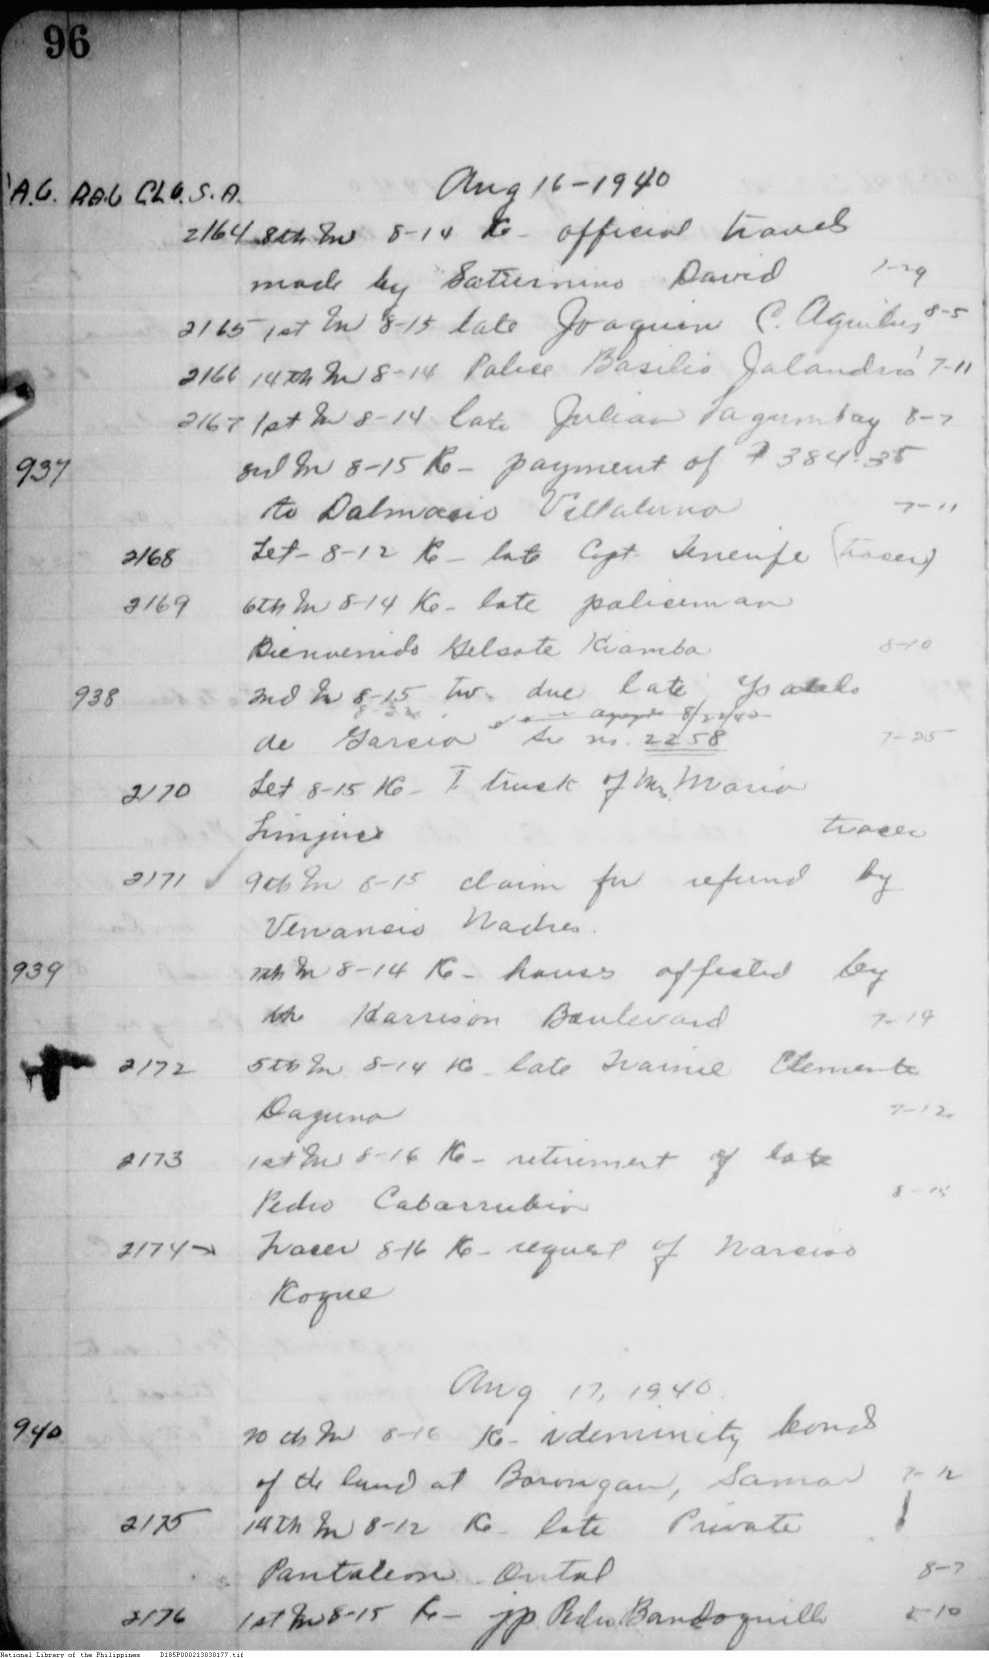 96
A.G. AAG CLG. S.A. Aug 16-1940
2164 8th In 8-14 Re- official travels
made by Saturnino David 7-29
2165 1st In 8-15 late Joaquin C. Aguilus 8-5
2166 14th In 8-14 Police Basilio Jalandris 7-11
2167 1st In 8-14 late Julian Tagumbay 8-7
937 3rd In 8-15 Re- payment of ₱384.35
to Dalmacio Villaluna 7-11
2168 Let- 8-12 Re- late Cpt. Tenerife (tracer)
2169 6th In 8-14 Re- late policeman
Bienvenido Gelsote Kiamba 8-10
938 2nd In 8-15 tw. due late
8/22/40
de Garcia no. 2258 7-25
2170 Let 8-15 Re- T truck of Mr. Mario
Limjuco tracer
2171 9th In 8-15 claim for refund by
Venancio Nadres.
939 In 8-14 Re- houses affected by
the Harrison Boulevard 7-19
2172 5th In 8-14 Re- late Trainee Clemente
Daguno 7-12
2173 1st In 8-16 Re- retirement of late
Pedro Cabarrubia 8-15
2174 Tracer 8-16 Re- request of Narciso
Roque
Aug 17, 1940.
940 10th In 8-16 Re- ideminity bond
of the land at Borongan, Samar 7-12
2175 14th In 8-12 Re- late Private
Pantaleon Ontal 8-7
2176 1st In 8-15 Re- jp Pedro Bandoquillo 8-10
National Library of the Philippines D185P000213838177.tif